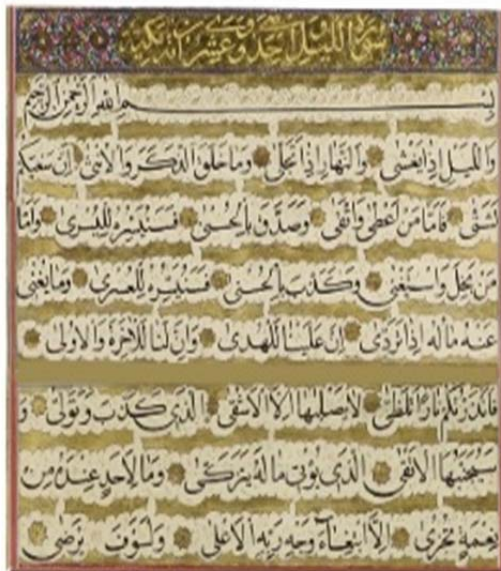 سورة الليل احدى وعشرون آية مكية
بسم الله الرحمن الرحيم
والليل إذا يغشى والنهار إذا تجلى وما خلق الذكر والأنثى إن سعيكم
لشتى فأما من أعطى واتقى وصدق بالحسنى فسنيسره لليسرى وأما
من بخل واستغنى وكذب بالحسنى فسنيسره للعسرى وما يغنى
عنه ماله إذا تردى إن علينا للهدى وإن لنا للآخرة والأولى
فأنذرتكم نارا تلظى لا يصليها إلا الأشقى الذي كذب وتولى و
سيجنبها الأتقى الذي يؤتى ماله يتزكى وما لأحد عنده من
نعمة تجزى إلا ابتغاء وجه ربه الأعلى ولسوف يرضى